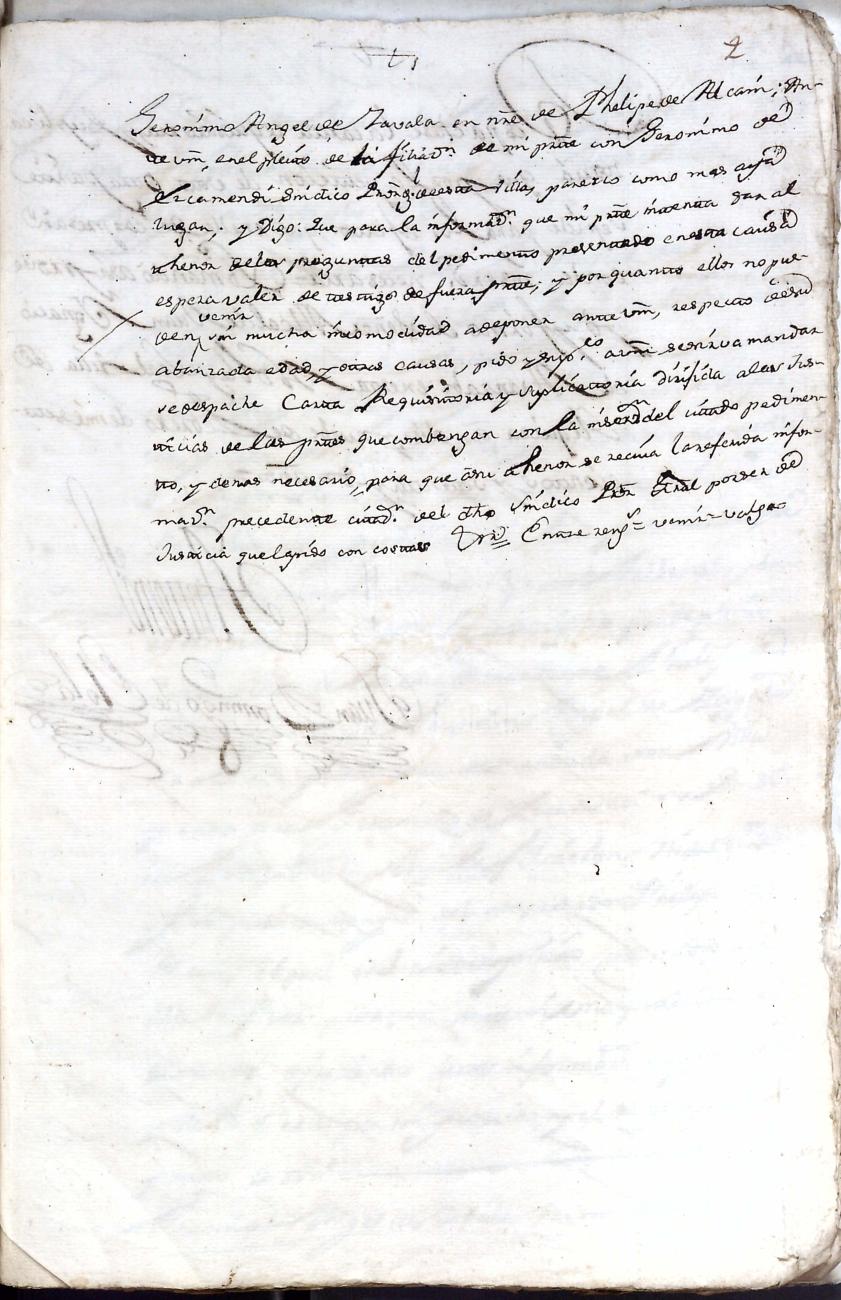 2
Geronimo Angel de Zavala en nre de Phelipe de Alcain; An-
te vm, en el pleito de la filiaон de mi parte con Geronimo de
Arcamendi Sindico Prōr g.l de esta Villa, parezco como mas aya
lugar; y Digo: Que para la informaōn que mi parte intenta dar al
thenor de las preguntas del pedimento presentado en esta causa
espera valer de testigos de fuera parte; y por quanto ellos no pue-
den venir sin mucha incomodidad a deponer ante vm, respecto de su
abanzada edad, y otras causas, pido y supp.co a vm se sirva mandar
se despache Carta Requisitoria y suplicatoria dirijida a las Jus-
ticias de las partes que combengan con la inserōn del citado pedimen-
to, y demas necesario, para que a su thenor se reciva la referida infor-
maōn precedente citaōn del dho Sindico Prōr Gral por ser de
Justicia que la pido con costas Entre reng.s = venir = valga